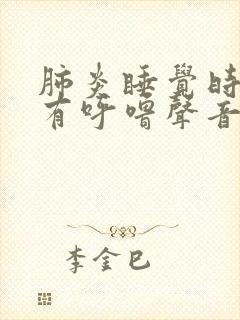 肺炎睡覺時
有呼喟聲音
李金巳